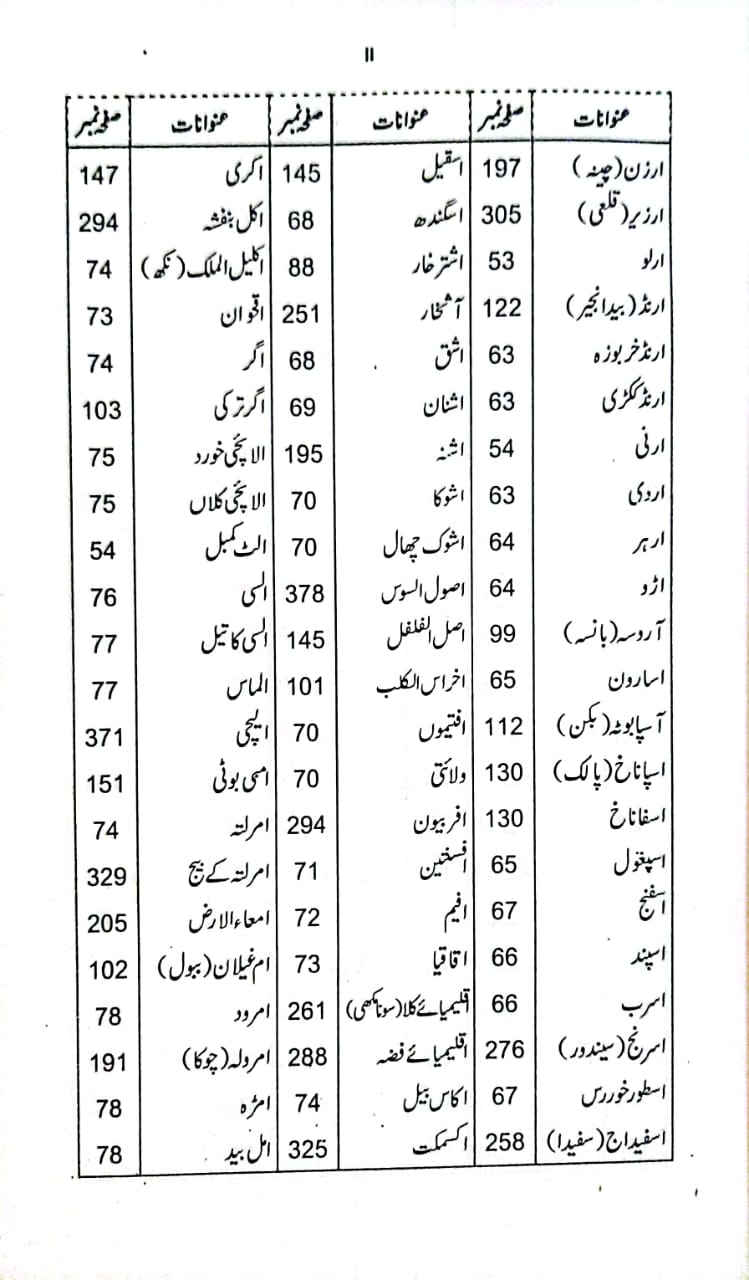 ۱۱
عنوانات صفحہ نمبر عنوانات صفحہ نمبر عنوانات صفحہ نمبر
ارزن (چینہ) 197 اسقیل 145 اکری 147
ارزیر (قلعی) 305 اسگندھ 68 اکل بنفشہ 294
ارلو 53 اشتر خار 88 اکلیل الملک (نکھ) 74
ارنڈ (بیدانجیر) 122 آشخار 251 اقحوان 73
ارنڈ خربوزہ 63 اشق 68 اگر 74
ارنڈ ککڑی 63 اشنان 69 اگر ترکی 103
ارنی 54 اشنہ 195 الائچی خورد 75
اردی 63 اشوکا 70 الائچی کلاں 75
ارہر 64 اشوک چھال 70 الٹ کمبل 54
اڑو 64 اصول السوس 378 السی 76
آروسہ (بانسہ) 99 اصل الفلفل 145 السی کا تیل 77
اسارون 65 اخراس الکلب 101 الماس 77
آسپا بوٹہ (بکن) 112 افتیموں 70 ایلچی 371
اسپاناخ (پالک) 130 ولائتی 70 امسی بوٹی 151
اسفاناخ 130 افربیون 294 امرلتہ 74
اسپغول 65 افسنتین 71 امرلتہ کے بیج 329
اسفنج 67 افیم 72 امعاء الارض 205
اسپند 66 اقاقیا 73 ام غیلان (ببول) 102
اسرب 66 اقلیمیائے کلا (سونا مکھی) 261 امرود 78
اسرنج (سیندور) 276 اقلیمیائے فضہ 288 امرولہ (چوکا) 191
اسطور خوررس 67 اکاس بیل 74 امڑہ 78
اسفیداج (سفیدا) 258 اکسمکت 325 امل بید 78